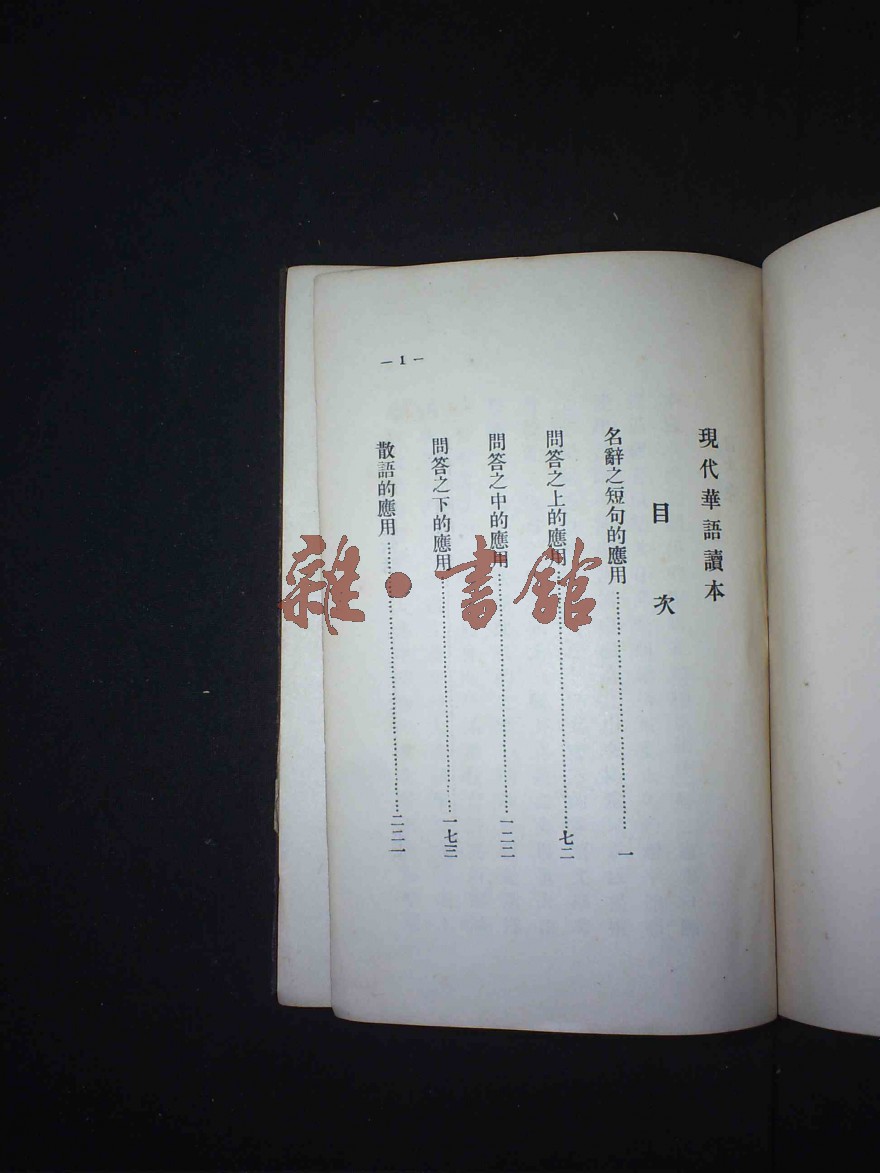 現代華語讀本
目次
名辭之短句的應用……一
問答之上的應用……七二
問答之中的應用……一二二
問答之下的應用……一七三
散語的應用……二二一
—1—
雜·書館